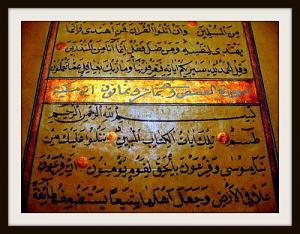 من المسلمين وأن أتلوا القرآن فمن اهتدى فإنما
يهتدي لنفسه ومن ضل فقل إنما أنا من المنذرين
وقل الحمد لله سيريكم آياته فتعرفونها وما ربك بغافل عما تعملون
سورة القصص ثمان وثمانون آية
بسم الله الرحمن الرحيم
طسم تلك آيات الكتاب المبين نتلوا عليك من
نبإ موسى وفرعون بالحق لقوم يؤمنون إن فرعون
علا في الأرض وجعل أهلها شيعا يستضعف طائفة